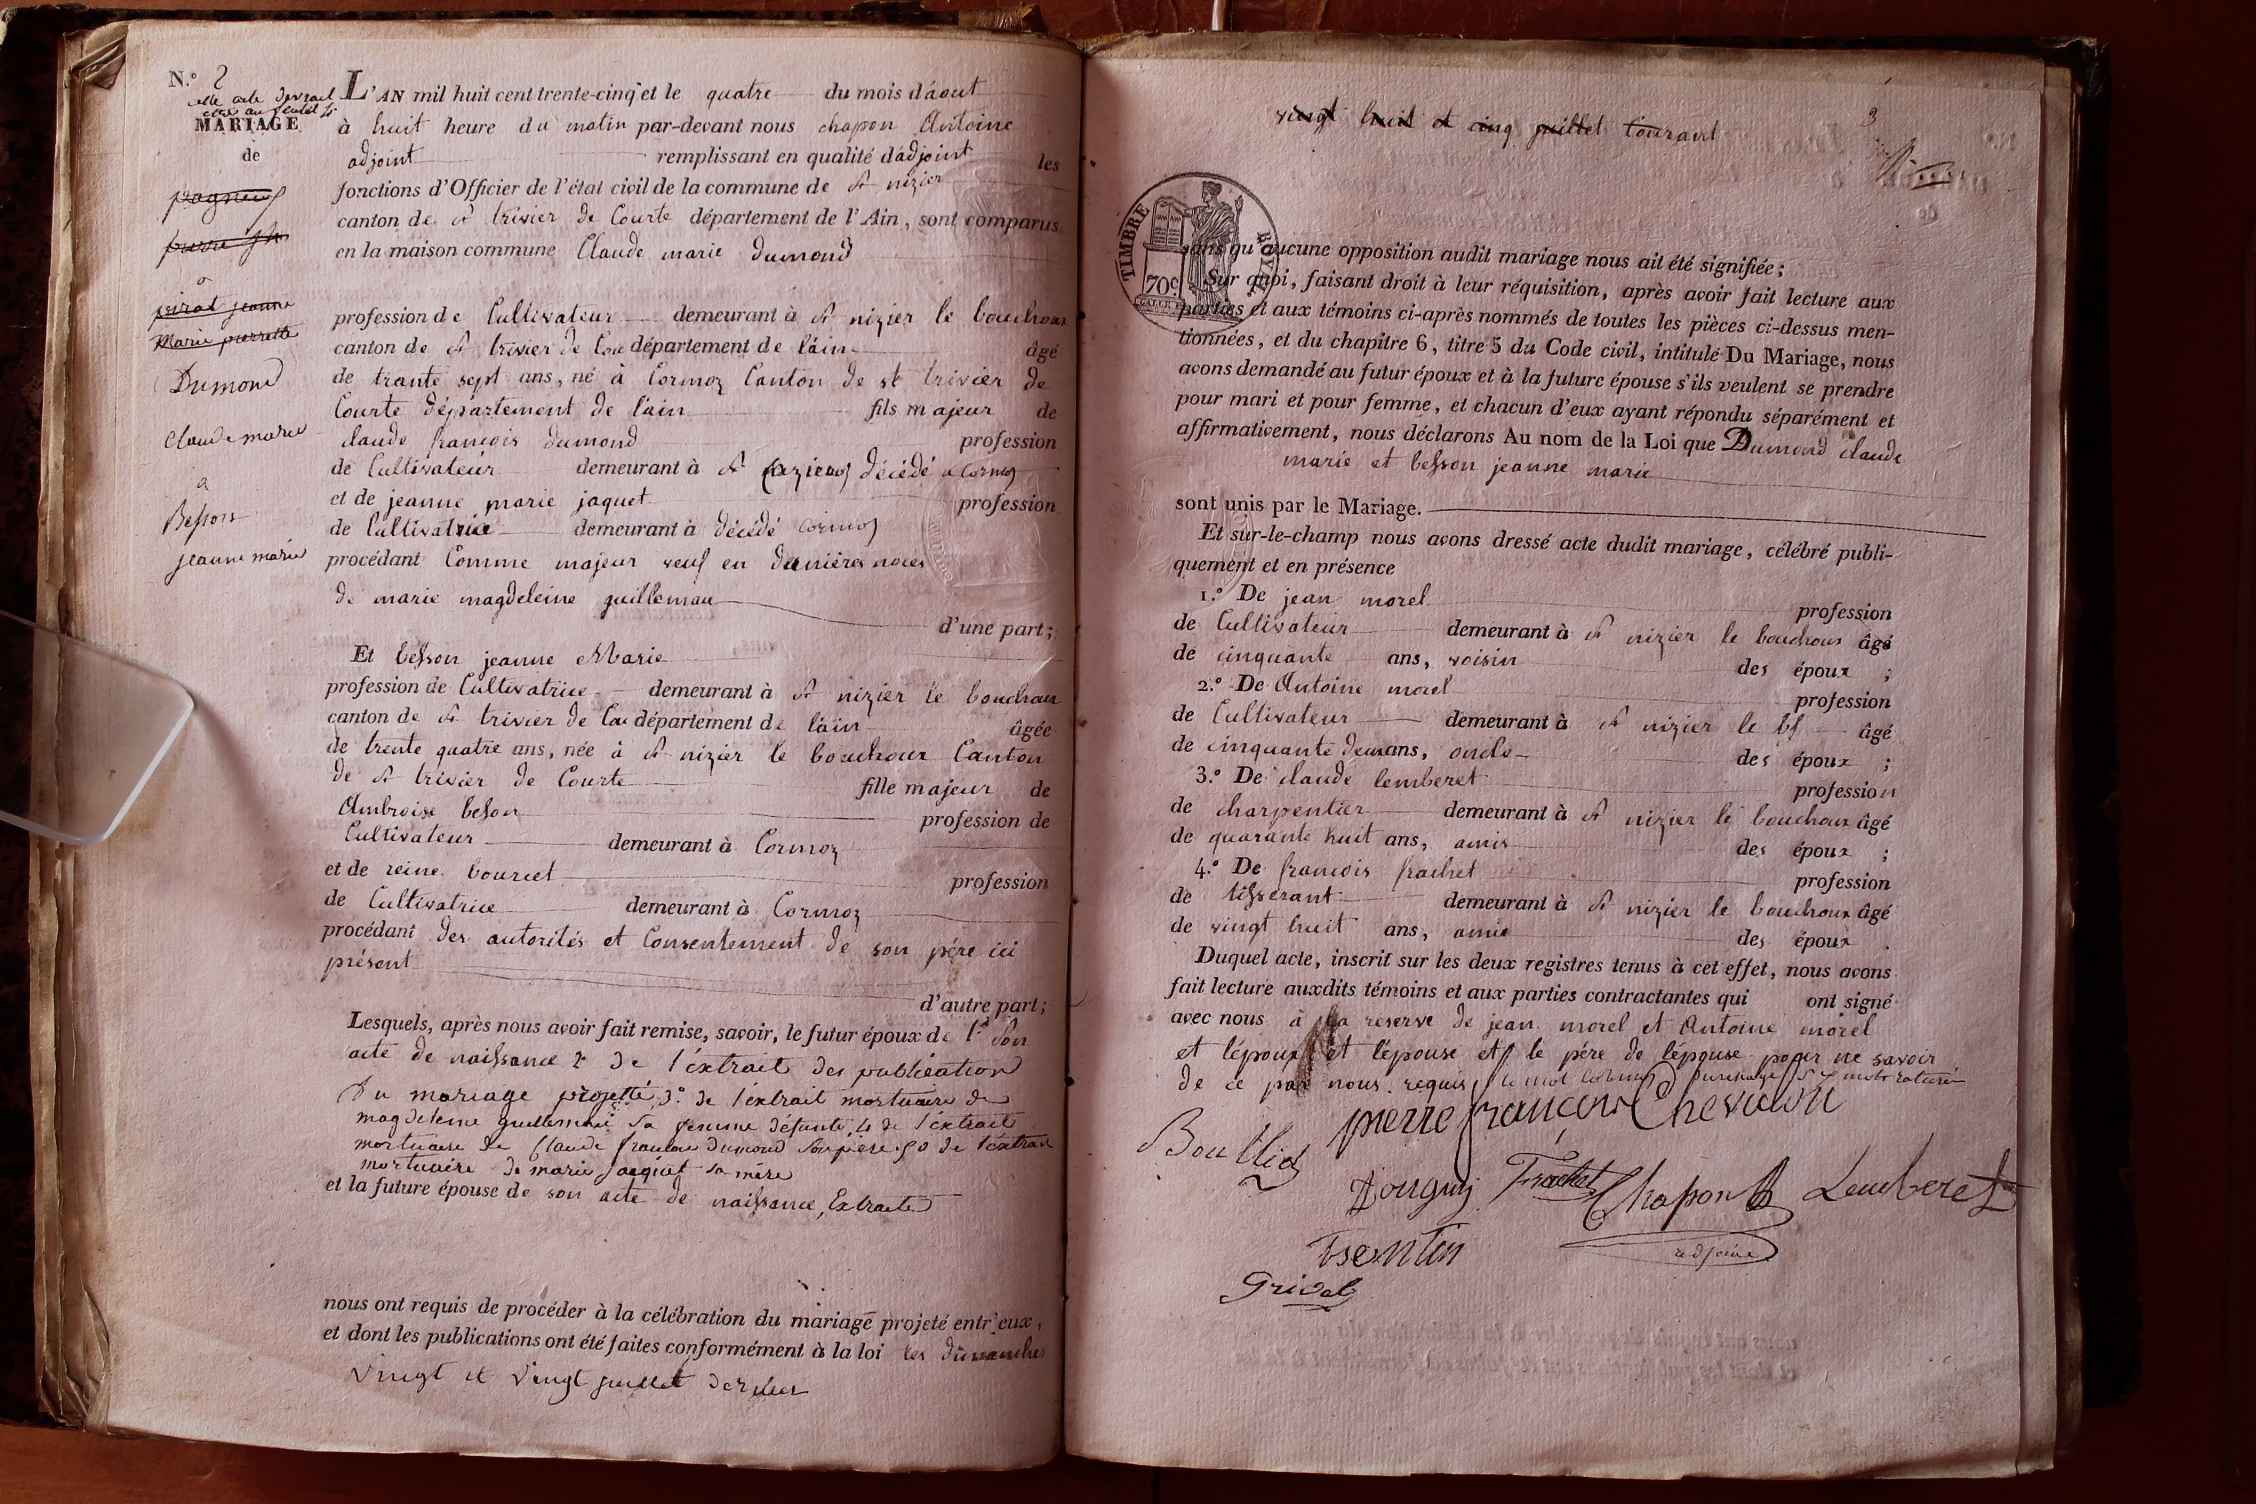 N.º 2
cette acte devrait
être au feuillet
MARIAGE
de
pagneux
pierre
à
poirat jeanne
Marie pierrette
Dumond
Claude marie
a
Besson
jeanne marie
L'AN mil huit cent trente-cinq et le quatre du mois d'août
à huit heure du matin par-devant nous chapon Antoine
adjoint remplissant en qualité d'adjoint les
fonctions d'Officier de l'état civil de la commune de St nizier
canton de St trivier de Courte département de l'Ain, sont comparus
en la maison commune Claude marie Dumond
profession de Cultivateur demeurant à St nizier le bouchoux
canton de St trivier de Cou département de l'ain âgé
de trante sept ans, né à Cormoz Canton de st trivier de
Courte département de l'ain fils majeur de
claude francois dumond profession
de Cultivateur demeurant à décédé a Cormoz
et de jeanne marie jaquet profession
de Cultivatrice demeurant à décédé Cormoz
procédant Comme majeur veuf en dernières noces
de marie magdeleine guillemau
d'une part;
Et besson jeanne Marie
profession de Cultivatrice demeurant à St nizier le bouchou
canton de St trivier de Cou département de l'ain âgée
de trente quatre ans, née à St nizier le bouchoux Canton
de St trivier de Courte fille majeur de
Ambroise besson profession de
Cultivateur demeurant à Cormoz
et de reine bourcet profession
de Cultivatrice demeurant à Cormoz
procédant des autorités et Consentement de son pére ici
présent
d'autre part;
Lesquels, après nous avoir fait remise, savoir, le futur époux de 1º Son
acte de naissance 2º de l'éxtrait des publication
Du mariage projetté 3º de l'éxtrait mortuaire de
magdeleine guillemau sa femme défunte, 4 de l'éxtrait
mortuaire de Claude francois Dumond Son père 5º de l'éxtrait
mortuaire de marie jacquet sa mére
et la future épouse de son acte de naissance, Extraite
nous ont requis de procéder à la célébration du mariage projeté entr'eux,
et dont les publications ont été faites conformément à la loi les dimanches
vingt et vingt juillet dernier
vingt huit et cinq juillet courant
3
TIMBRE ROYAL
70c
sans qu'aucune opposition audit mariage nous ait été signifiée;
Sur quoi, faisant droit à leur réquisition, après avoir fait lecture aux
parties et aux témoins ci-après nommés de toutes les pièces ci-dessus men-
tionnées, et du chapitre 6, titre 5 du Code civil, intitulé Du Mariage, nous
avons demandé au futur époux et à la future épouse s'ils veulent se prendre
pour mari et pour femme, et chacun d'eux ayant répondu séparément et
affirmativement, nous déclarons Au nom de la Loi que Dumond claude
marie et besson jeanne marie
sont unis par le Mariage.
Et sur-le-champ nous avons dressé acte dudit mariage, célébré publi-
quement et en présence
1.º De jean morel profession
de Cultivateur demeurant à St nizier le bouchoux âgé
de cinquante ans, voisin des époux ;
2.º De Antoine morel profession
de Cultivateur demeurant à St nizier le bf âgé
de cinquante deux ans, oncle des époux ;
3.º De claude lemberet profession
de charpentier demeurant à St nizier le bouchoux âgé
de quarante huit ans, amis des époux ;
4.º De francois frachet profession
de tisserant demeurant à St nizier le bouchoux âgé
de vingt huit ans, amis des époux .
Duquel acte, inscrit sur les deux registres tenus à cet effet, nous avons
fait lecture auxdits témoins et aux parties contractantes qui ont signé
avec nous à la reserve de jean morel et Antoine morel
et l'époux et l'épouse et le pére de l'épouse pour ne savoir
de ce par nous requis
pierre françois Chevalon
Frachet Chapon Lemberet
adjoint
Grivel